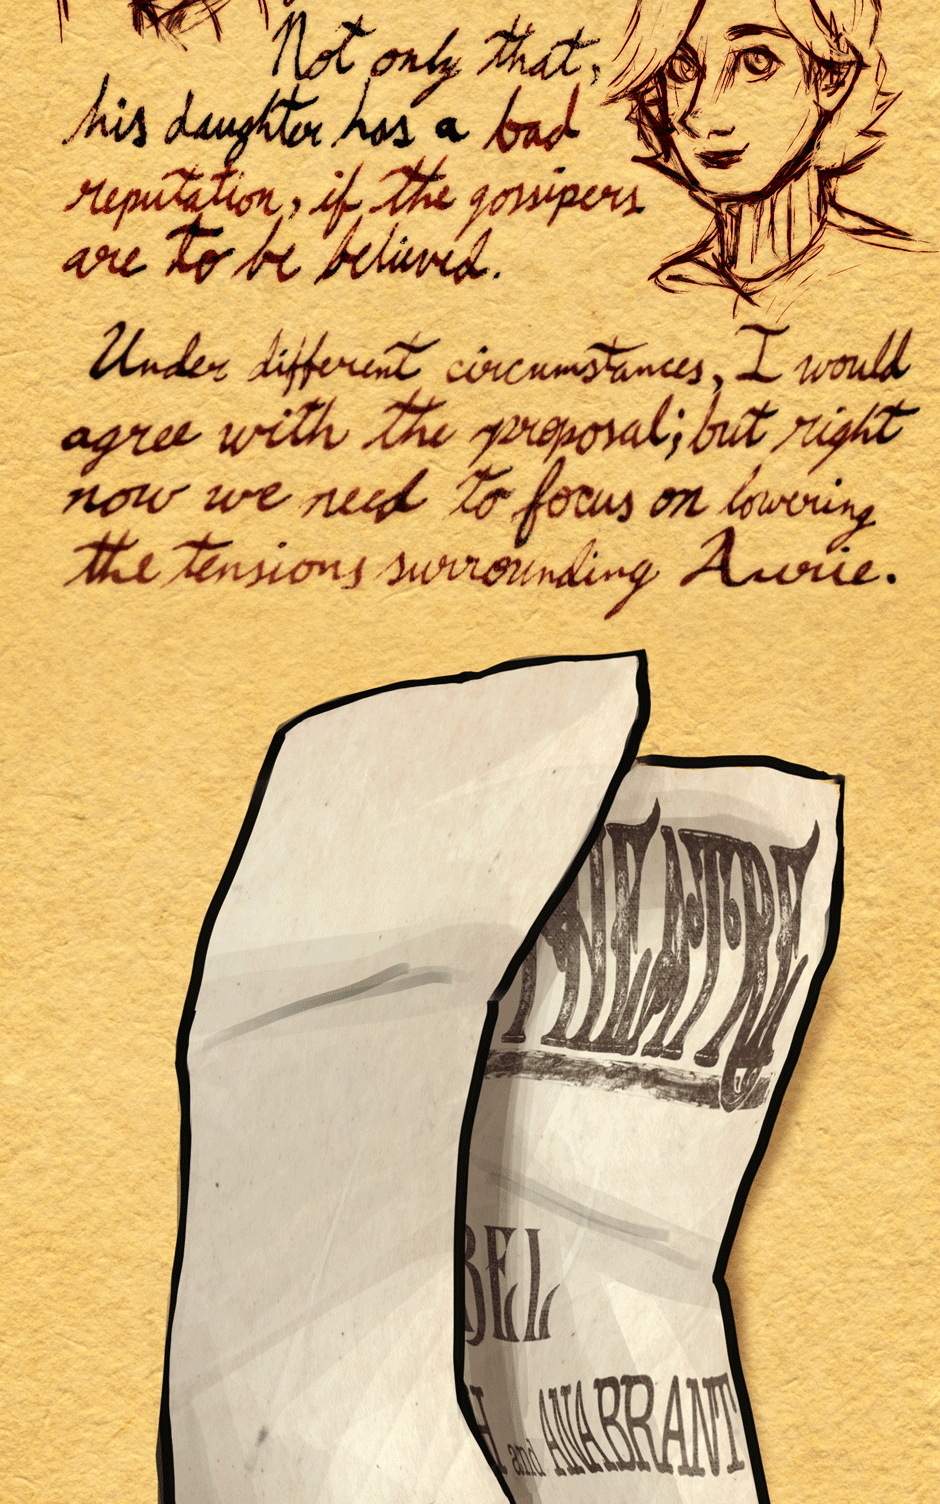 Not only that,
his daughter has a bad
reputation, if the gossipers
are to be believed.
Under different circumstances, I would
agree with the proposal; but right
now we need to focus on lowering
the tensions surrounding Awrie.
THEATRE
BEL
H and ANABRANT